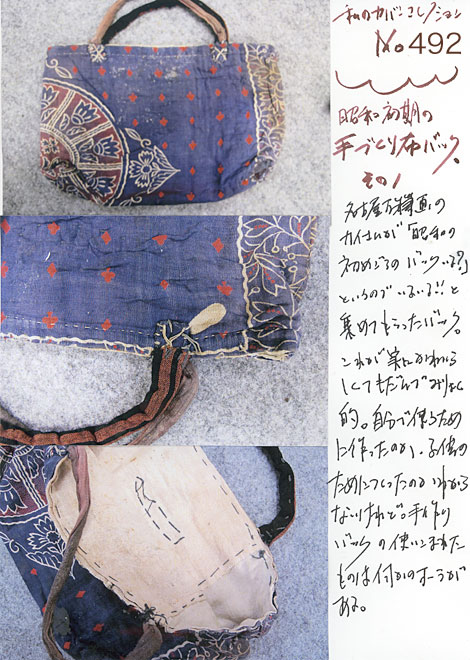 私のカバンコレクション
No 492
昭和初期の
手づくり布バック。
その1
名古屋古裂画の
カイさんが「昭和の
初めごろのバックいる?」
というので いる!! と
集めてもらったバック。
これが実にかわいら
しくてもだんで
的。自分で使うため
に作ったのか、子供の
ためにつくったのかわから
ないけれど。手作り
バックの使いこまれた
ものは何かのオーラが
ある。